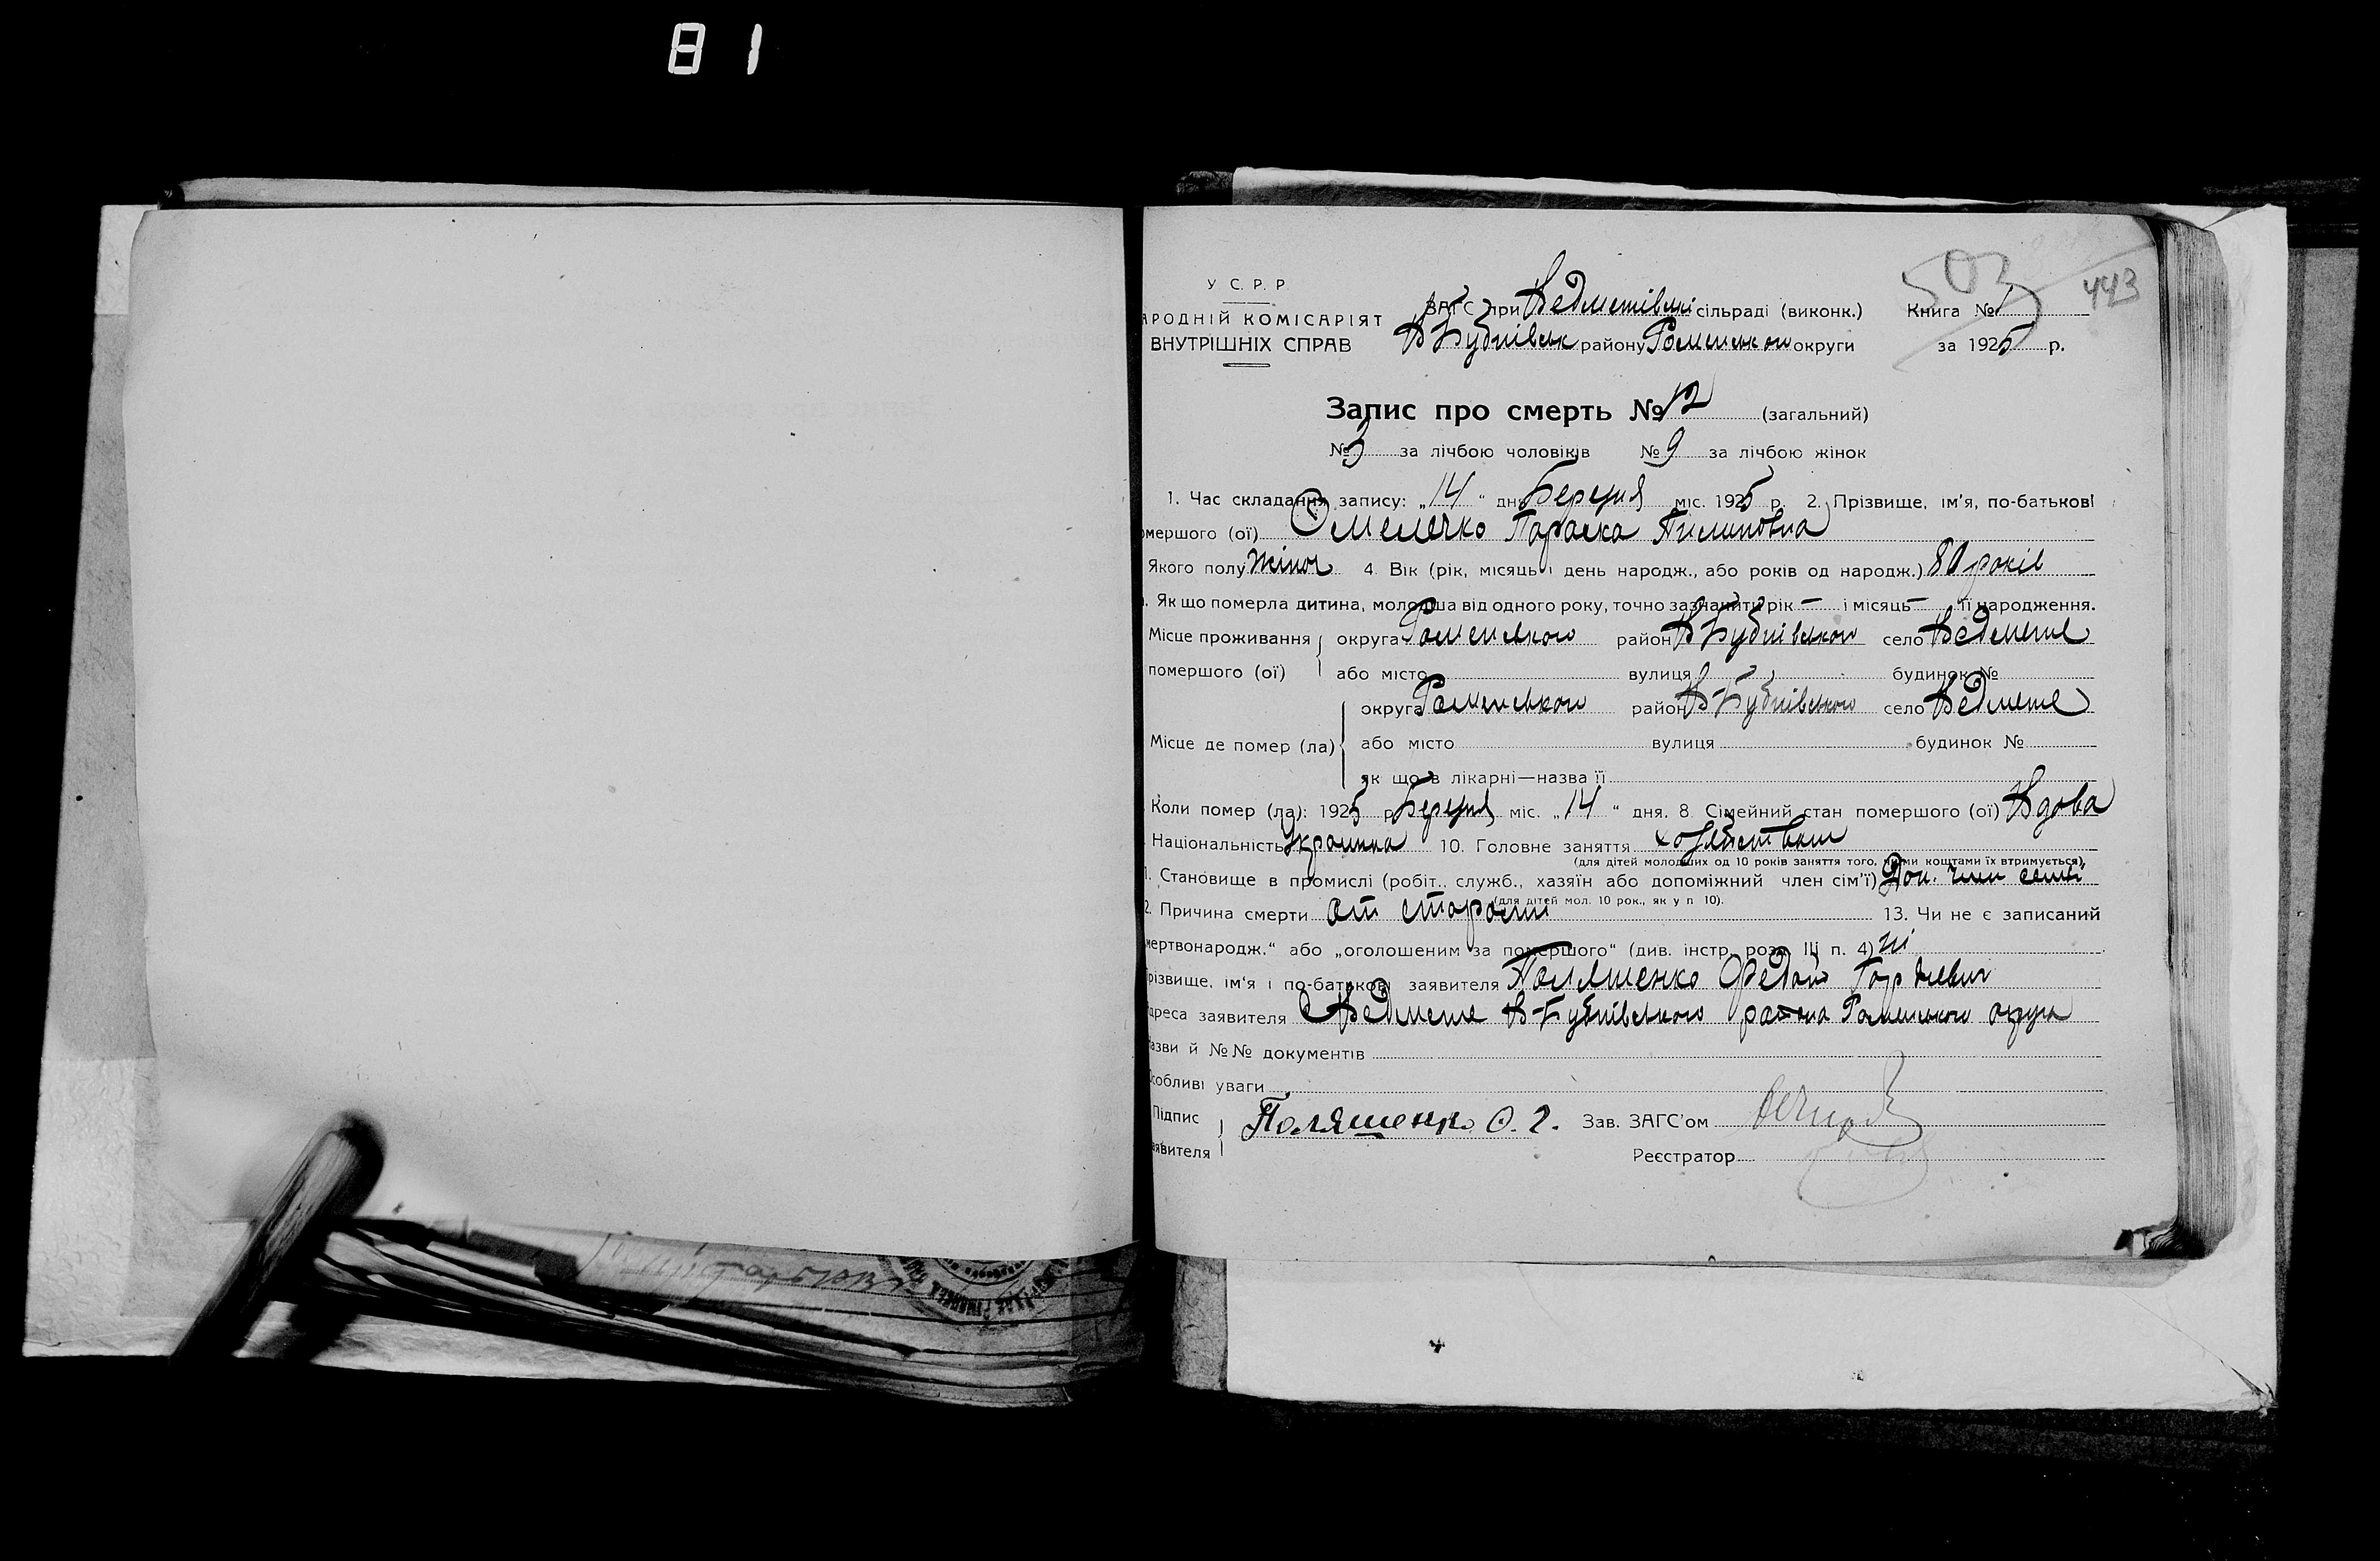 81
443
503
У. С. Р. Р.
АРОДНІЙ КОМІСАРІЯТ
ВНУТРІШНІХ СПРАВ
ЗАГС при Ведметівські сільраді (виконк.) Книга № 1
В Бубнівськ району Роменськои округи за 1925 р.
Запис про смерть № 12 (загальний)
№ 3 за лічбою чоловіків № 9 за лічбою жінок
1. Час складання запису: „14“ дня Березня міс. 1925 р. 2. Прізвище, ім'я, по-батькові
омершого (ої) Омелечко Параска Пилиповна
Якого полу жіноч 4. Вік (рік, місяць і день народж., або років од народж.) 80 років
. Як що померла дитина, молодша від одного року, точно зазначити рік — і місяць — її народження.
Місце проживання округа Роменського район В Бубнівського село Ведмеже
помершого (ої) або місто вулиця будинок №
округа Роменського район В-Бубнівського село Ведмеже
Місце де помер (ла) або місто вулиця будинок №
як що в лікарні—назва її
Коли помер (ла): 1925 р. Березня міс. „14“ дня. 8. Сімейний стан помершого (ої) Вдова
Національність Украинка 10. Головне заняття
(для дітей молодших од 10 років заняття того, чиїми коштами їх втримується).
1. Становище в промислі (робіт., служб., хазяїн або допоміжний член сім'ї) Доп. член семьі
(для дітей мол. 10 рок., як у п 10).
2. Причина смерти от старости 13. Чи не є записаний
мертвонародж.“ або „оголошеним за помершого“ (див. інстр. розд. III п. 4) ні
різвище, ім'я і по-батькові заявителя Поляшенко Федор Гордиевич
дреса заявителя С Ведмеже В-Бубнівського района Роменського округа
азви й №№ документів
Особливі уваги
Підпис Поляшенко Ф. Г. Зав. ЗАГС'ом
аявителя Реєстратор